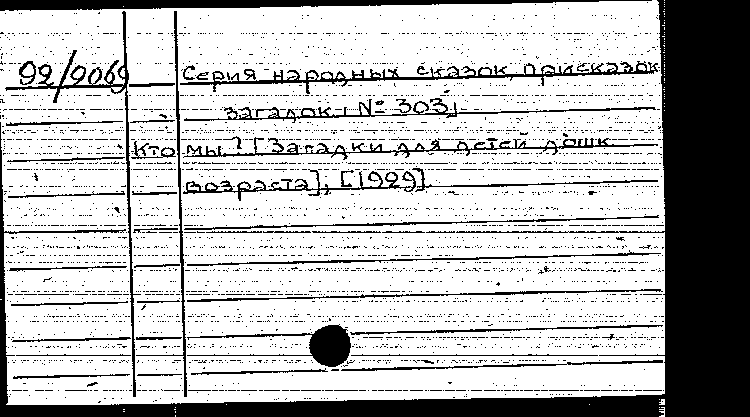 92/9069 Серия народных сказок, присказок
загадок, № 303,
Кто мы? [Загадки для детей дошк
возраста], [1929]